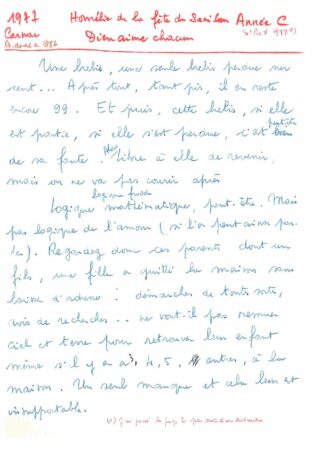 1977 Homélie de la fête du Sacré Cœur Année C
Carnac Dieu aime chacun
Une brebis, une seule brebis perdue sur
cent... Après tout, tant pis, il en reste
encore 99. Et puis, cette brebis, si elle
est partie, si elle s'est perdue, c'est peut-être
de sa faute. Libre à elle de revenir,
mais on ne va pas courir après
logique froide
Logique mathématique, peut-être. Mais
pas logique de l'amour (si l'on peut ainsi par-
ler). Regardez donc ces parents dont un
fils, une fille a quitté la maison sans
laisser d'adresse : démarches de toutes sortes,
avis de recherches.. ne vont-il pas remuer
ciel et terre pour retrouver leur enfant
même s'il y en a 3, 4, 5, autres, à la
maison. Un seul manque et cela leur est
insupportable.